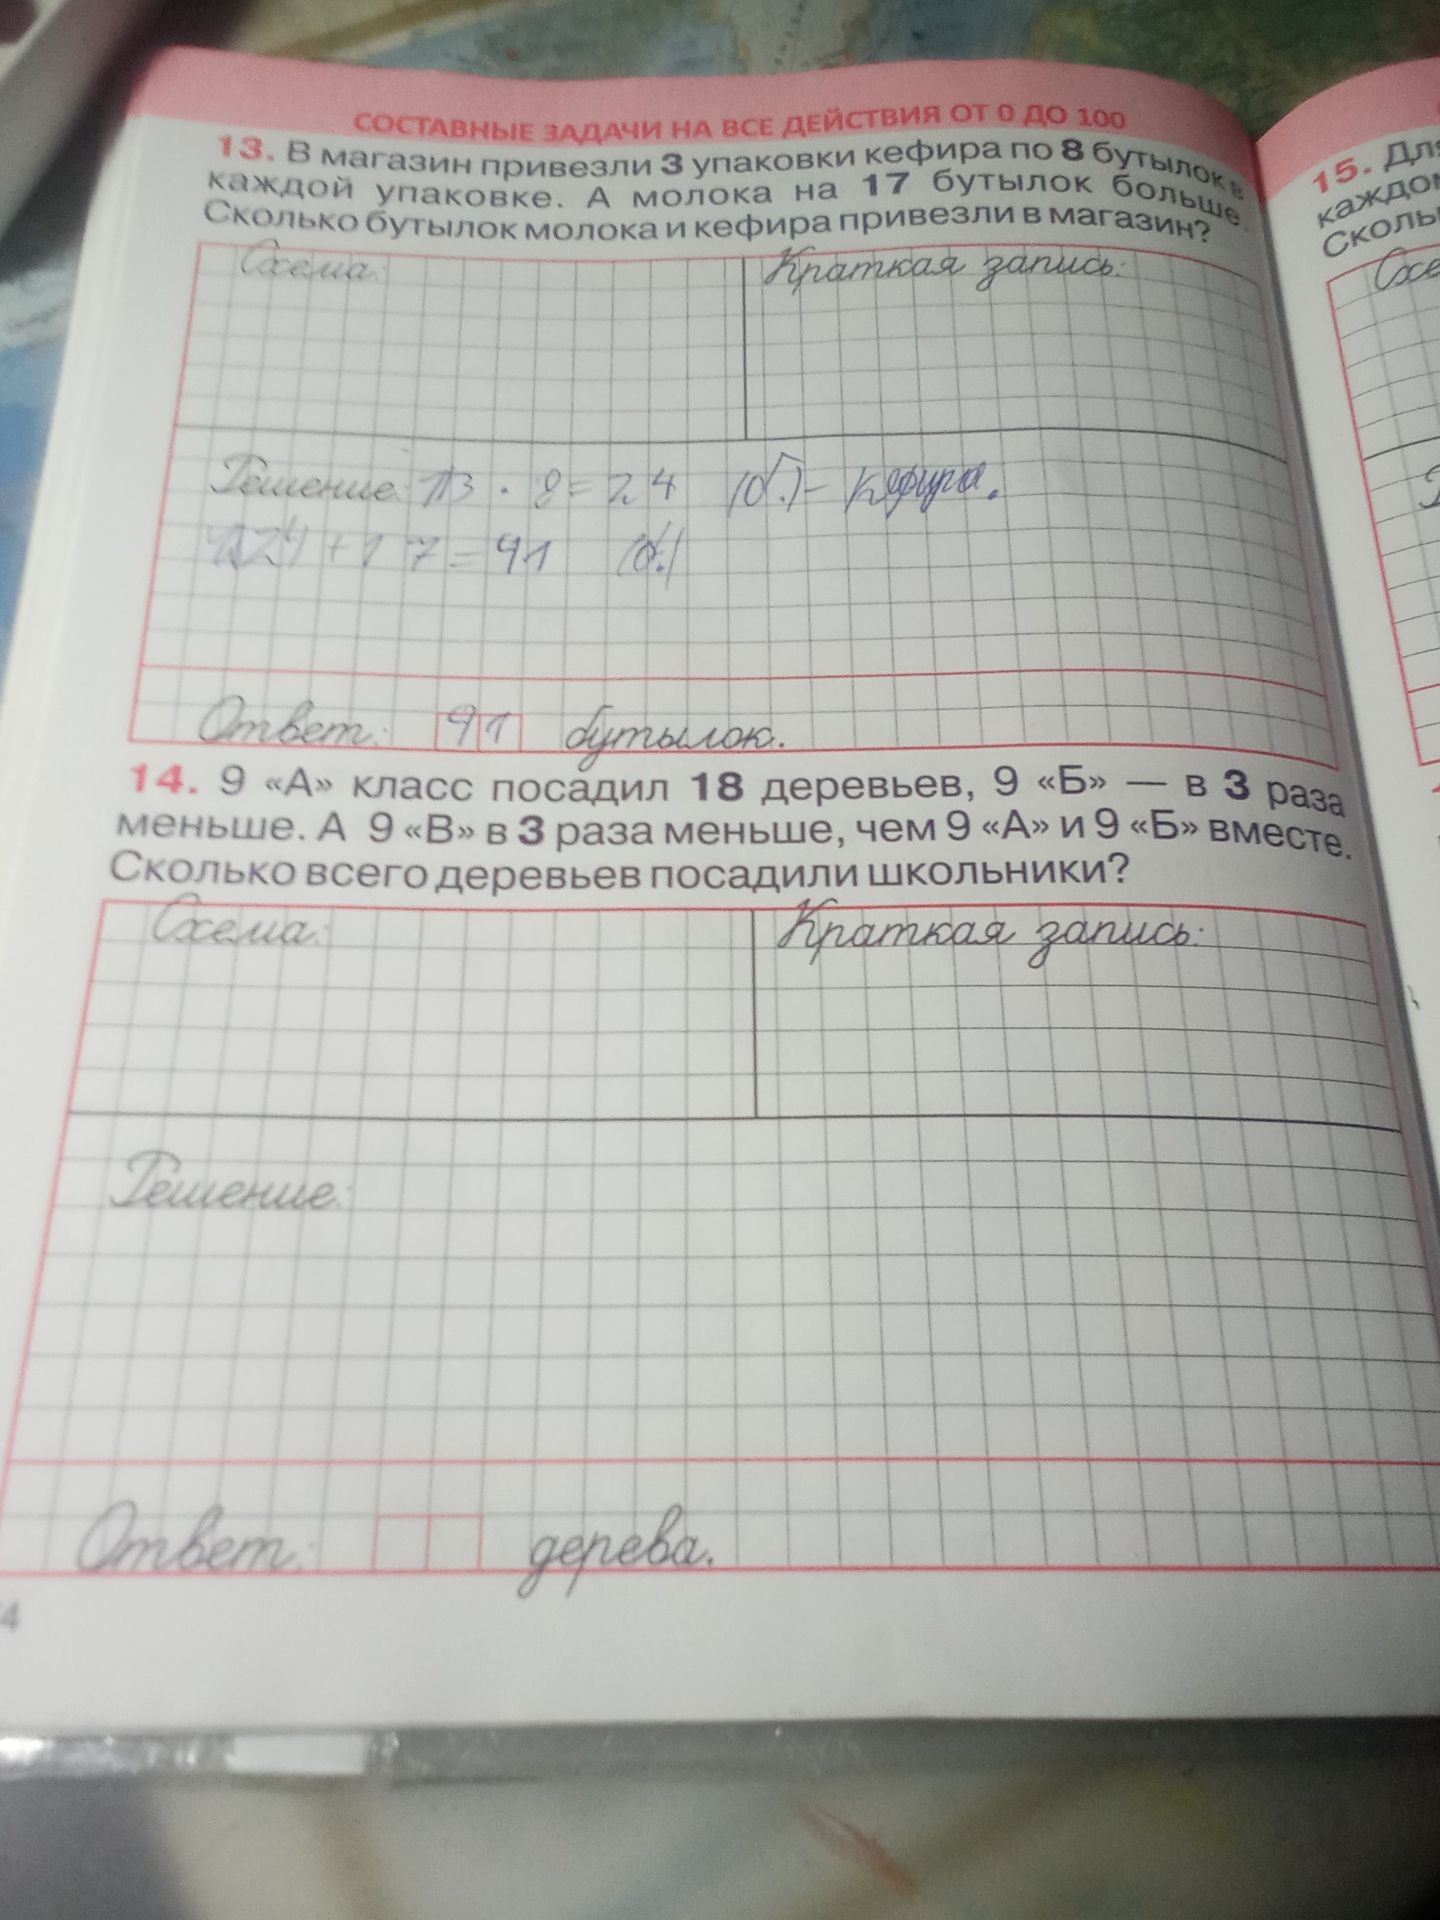 СОСТАВНЫЕ ЗАДАЧИ НА ВСЕ ДЕЙСТВИЯ ОТ 0 ДО 100
13. В магазин привезли 3 упаковки кефира по 8 бутылок в
каждой упаковке. А молока на 17 бутылок больше.
Сколько бутылок молока и кефира привезли в магазин?
Схема: Краткая запись:
Решение: 1) 3 · 8 = 24 (б.) – кефира.
24 + 17 = 41 (б.)
Ответ: 41 бутылок.
14. 9 «А» класс посадил 18 деревьев, 9 «Б» — в 3 раза
меньше. А 9 «В» в 3 раза меньше, чем 9 «А» и 9 «Б» вместе.
Сколько всего деревьев посадили школьники?
Схема: Краткая запись:
Решение:
Ответ: дерева.
4
15. Для
каждом
Сколь
Схе